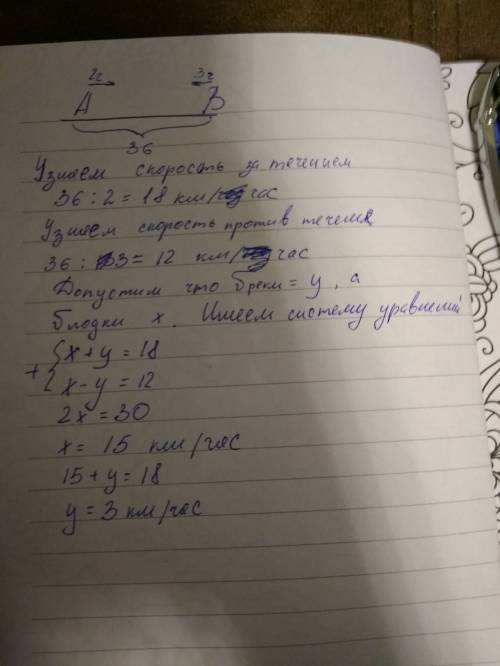 2ч 3ч
A B
36
Узнаем скорость за течением
36 : 2 = 18 км/час
Узнаем скорость против течения
36 : 3 = 12 км/час
Допустим что реки = y, а
лодки x. Имеем систему уравнений
+ { x + y = 18
x - y = 12
2x = 30
x = 15 км/час
15 + y = 18
y = 3 км/час